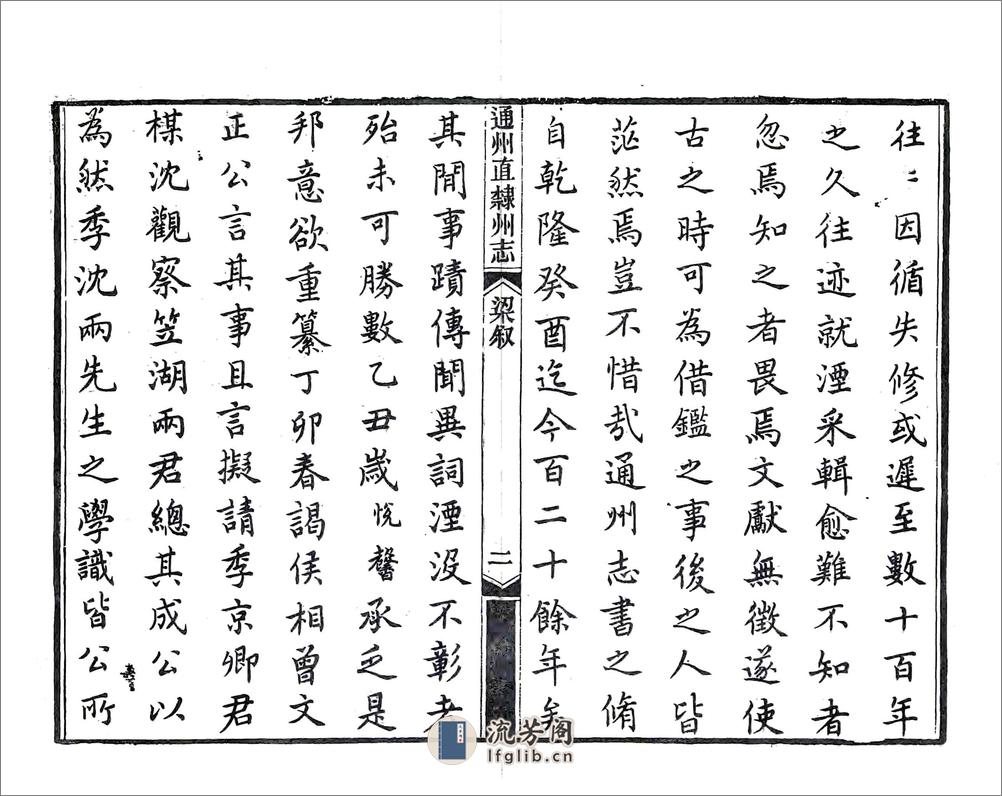 往〻因循失修或遲至數十百年
之久往迹就湮采輯愈難不知者
忽焉知之者畏焉文獻無徵遂使
古之時可為借鑑之事後之人皆
茫然焉豈不惜哉通州志書之脩
自乾隆癸酉迄今百二十餘年矣
通州直隸州志
梁叙
二
其間事蹟傳聞異詞湮沒不彰者
殆未可勝數乙丑歲悅馨承乏是
邦意欲重纂丁卯春謁侯相曾文
正公言其事且言擬請季京卿君
楳沈觀察笠湖兩君總其成公以
為然季沈兩先生之學識皆公所
流芳阁
lfglib.cn